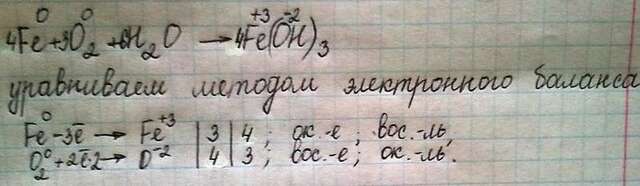 0 0 +3 -2
4Fe+3O2+6H2O → 4Fe(OH)3
уравниваем методом электронного баланса
Fe0-3ē → Fe+3 | 3 | 4; ок.-е; вос.-ль,
O20+2ē·2 → O-2 | 4 | 3; вос.-е; ок.-ль.